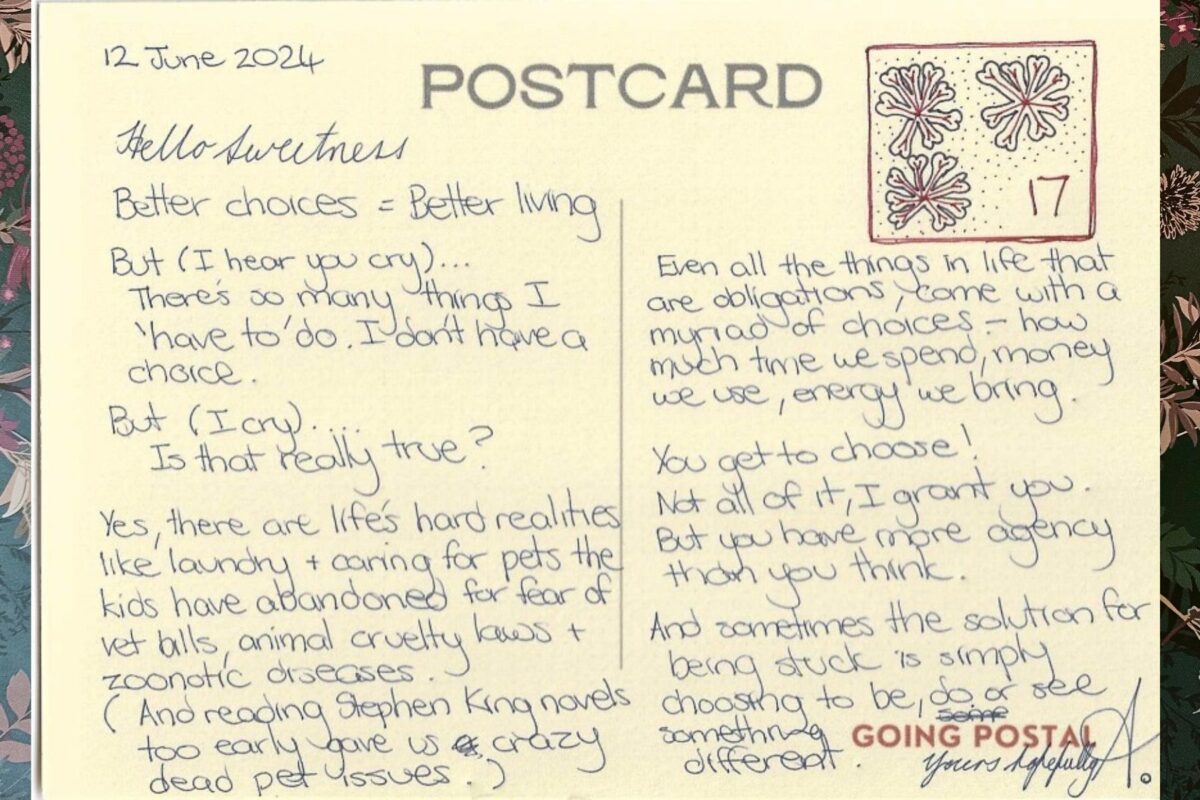 12 June 2024
POSTCARD
17
Hello Sweetness
Better choices = Better living
But (I hear you cry)...
There's so many things I
'have to' do. I don't have a
choice.
But (I cry)....
Is that really true?
Yes, there are life's hard realities
like laundry + caring for pets the
kids have abandoned for fear of
vet bills, animal cruelty laws +
zoonotic diseases.
(And reading Stephen King novels
too early gave us crazy
dead pet issues.)
Even all the things in life that
are obligations, come with a
myriad of choices – how
much time we spend, money
we use, energy we bring.
You get to choose!
Not all of it, I grant you.
But you have more agency
than you think.
And sometimes the solution for
being stuck is simply
choosing to be, do or see
some
something
different.
GOING POSTAL
Yours hopefully A.